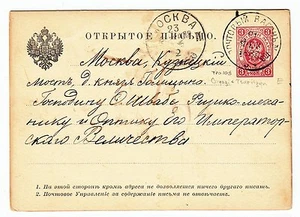 ОТКРЫТОЕ ПИСЬМО.
МОСКВА
23
ПОЧТОВЫЙ ВАГОНЪ
3
Москва, Кузнецкій
мостъ д. князя Голицына
Господину О. Швабе, Физико-меха-
нику и Оптику Его Император-
скаго Величества
1.- На этой сторонѣ кромѣ адреса не дозволяется ничего другаго писать.
2.- Почтовое Управленіе за содержаніе письма не отвѣчаетъ.